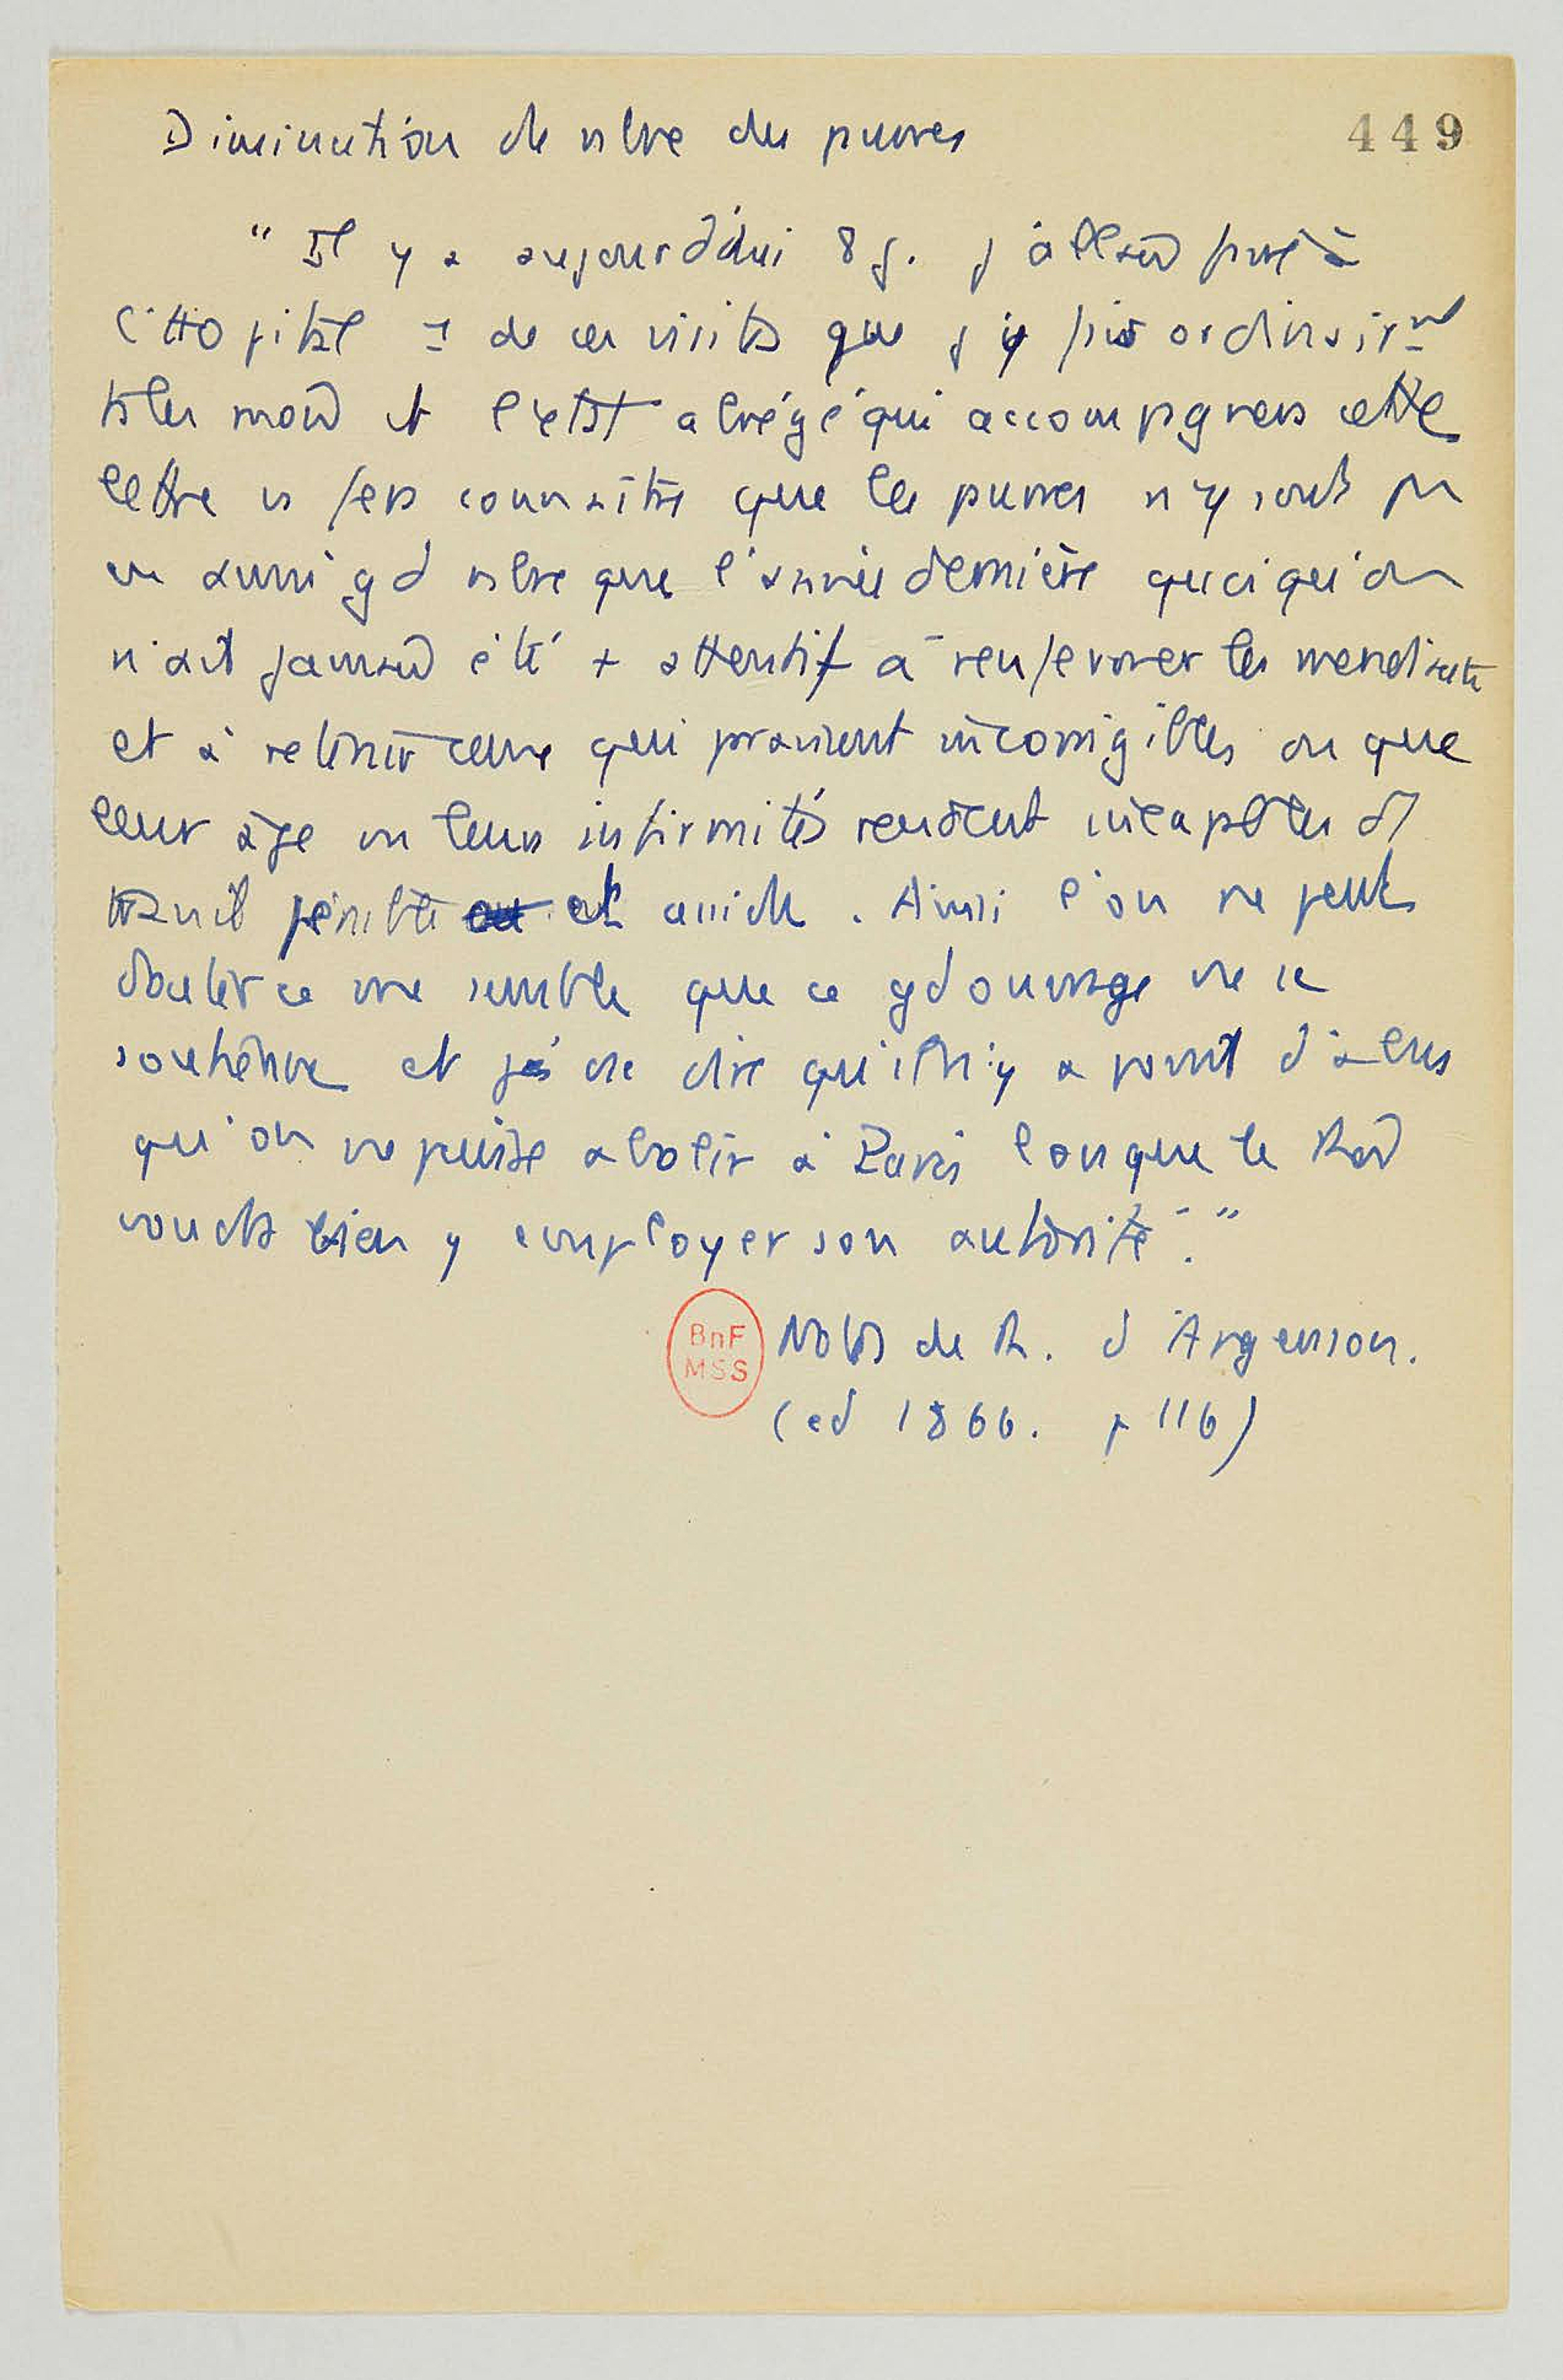 Diminution de nbre des pauvres
449
" Il y a aujourd'hui 8 j. j'allais
l'Hopital 1 de ces visites que j'y fais ordinairmt
ts les mois et l'extst abrégé qui accompagnera cette
lettre vs fera connaitre que les pauvres n'y sont pas
en aussi gd nbre que l'année dernière quoiqu'on
n'ait jamais été + attentif à renfermer les mendiants
et à retenir ceux qui provient incorrigibles ou que
leur âge ou leurs infirmités rendent incapables d'1
travail pénible et assidu. Ainsi l'on ne peut
douter ce me semble que ce gd ouvrage ne se
soutienne et j'ose dire qu'il n'y a point d'abus
qu'on ne puisse abolir à Paris lorsque le Roi
voudra bien y employer son autorité."
BnF
MSS
Notes de R. d'Argenson.
(ed 1866. p 116)